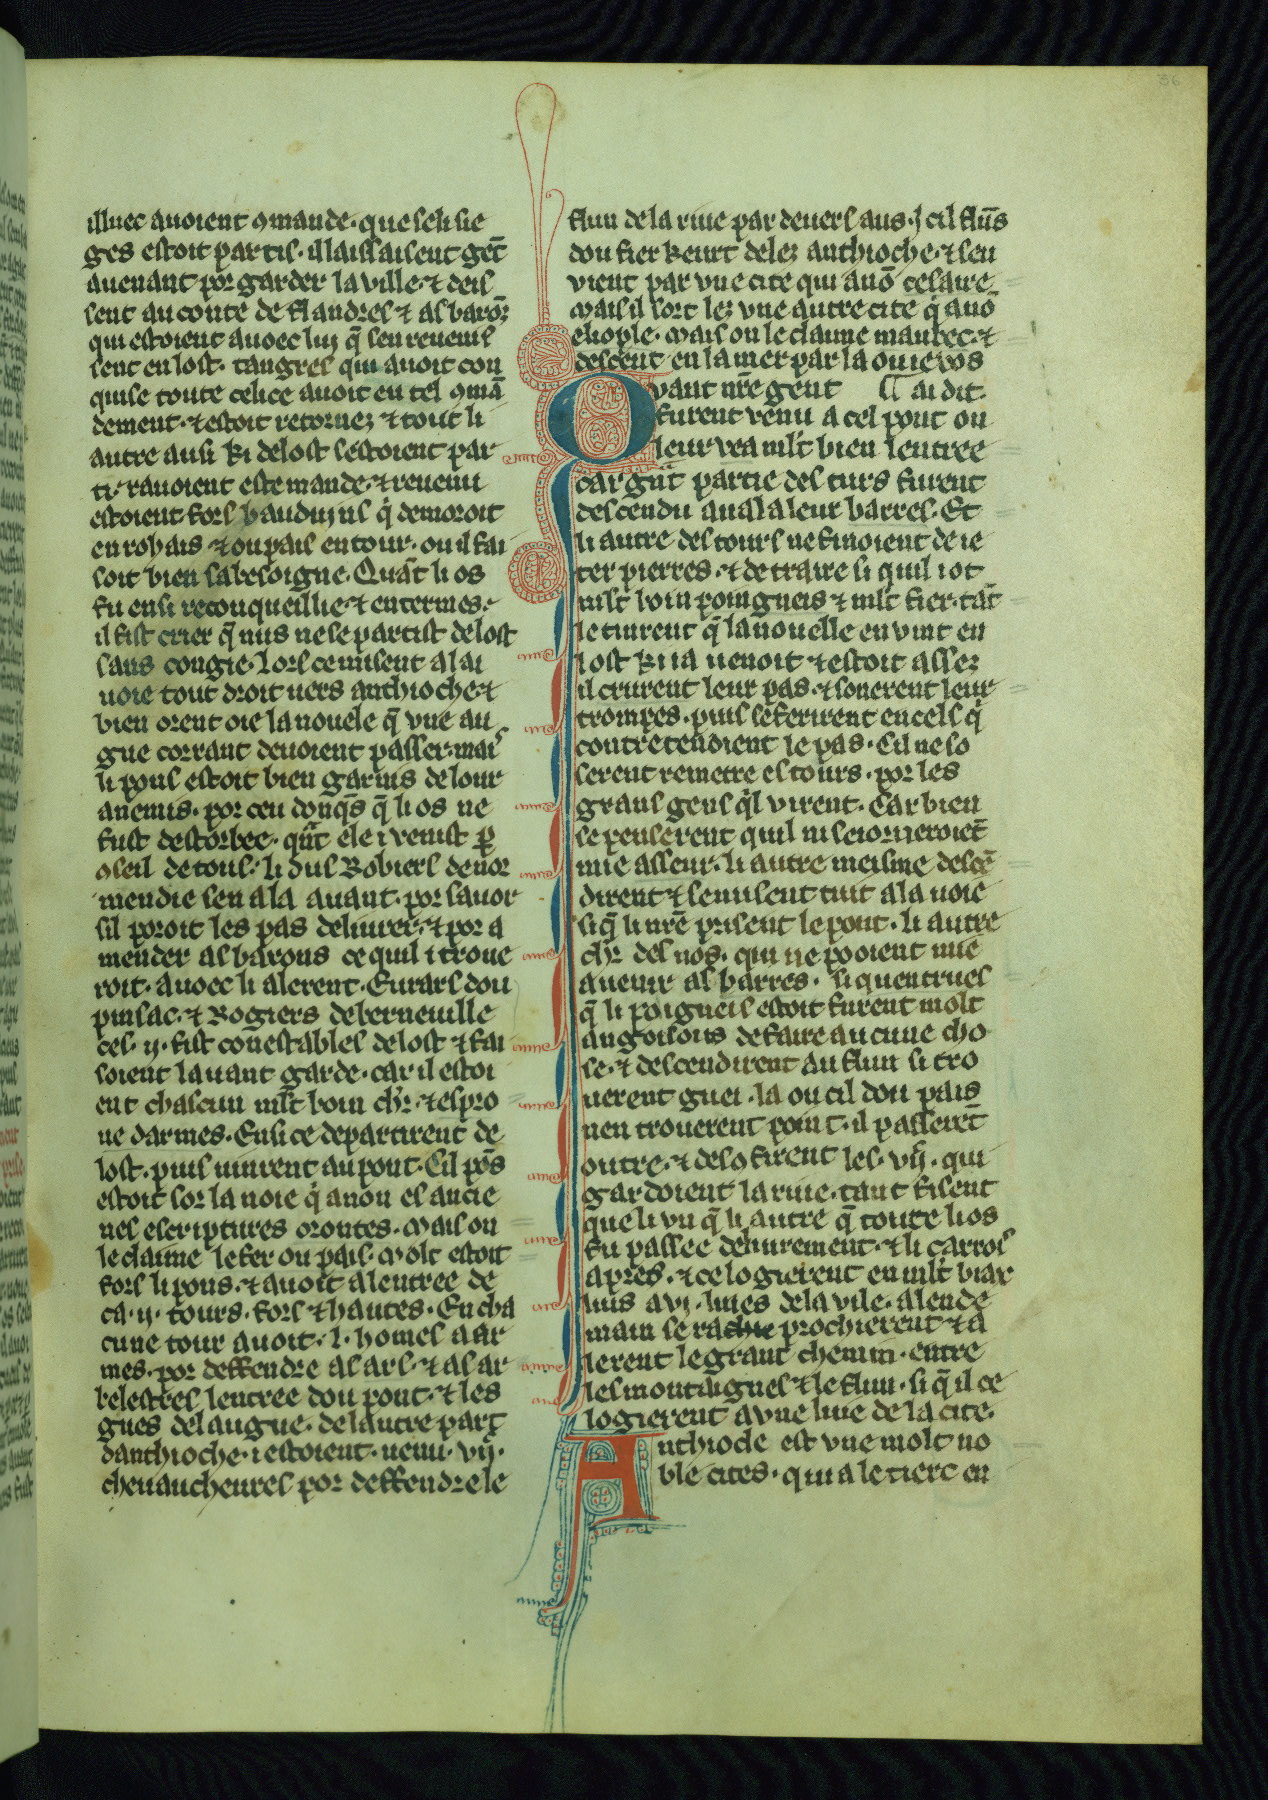 36
illuec auoient 9mande· que se li sie
ges estoit partis· il laissaisent get̄
auenant por garder la ville· ⁊ deis
sent au conte de flandres ⁊ as barōz
qui estoient auoec lui q̄ sen reuenis
sent en lost· tangres qui auoit con
quise toute celice auoit eu tel 9mā
dement· ⁊ estoit retornez ⁊ tout li
autre ausi ki de lost sestoient par
ti· rauoient este mande· ⁊ reuenu
estoient fors bauduins q̇ demoroit
en rohais ⁊ ou pais entour· ou il fai
soit bien sa besoigne· Quāt li os
fu ensi reconqueillie ⁊ enterines·
il fist crier q̄ nus ne se partist de lost
sans congie· lors ce misent a la
uoie tout droit uers anthioche· ⁊
bien orent oie la nouele q̄ vne au
gue corrant deuoient passer· mais
li pons estoit bien garnis de lour
anemis· por ceu donq̄s q̄ li os ne
fust destorbee· qūt ele i venist p̄
9seil de tous· li dus Robiers de nor
mendie sen ala auant· por sauor
sil poroit les pas deliurer· ⁊ por a
mender as barons ce quil i troue
roit· auoec li alerent· Eurars dou
puisac· ⁊ Rogiers de berneuille
ces· ij· fist cōnestables de lost ⁊ fai
soient lauant garde· car il estoi
ent chascun mlt̄ boin chr̄· ⁊ espro
ue darmes· Ensi ce departirent de
lost· puis uinrent au pont· Cil pōs
estoit sor la uoie q̇ a non es ancie
nes escriptures orontes· mais on
le claime le fer ou pais· molt estoit
fors li pons· ⁊ auoit a lentree de
ca· ij· tours· fors ⁊ hautes· En cha
cune tour auoit· l· homes a ar
mes· por deffendre as ars· ⁊ as ar
belestres lentree dou pont· ⁊ les
gues de laugue· de lautre part
danthioche· i estoient· uenu· vij·
cheuaucheures por deffendre le
flun de la riue par deuers aus· J cil flūs
dou fier keurt delez anthioche· ⁊ sen
vient par vne cite qui a nō cesaire
mais il sort lez vne autre cite q̇ a nō
eliople· mais on le claime maubec· ⁊
descent en la mer par la ou ie vos
Qvant nr̄e gent ai dit·
furent venu a cel pont on
leur vea mlt̄ bien lentree
car gnt̄ partie des turs furent
descendu aual a leur barres· Et
li autre des tours ne finoient de ie
ter pierres· ⁊ de traire si quil i ot
mlt̄ boin poingneis ⁊ mlt̄ fier· tāt
le tinrent q̄ la nouelle en vint en
lost ki ia uenoit ⁊ estoit assez
il crurent leur pas· ⁊ sonerent leur
trompes· puis se ferirent en cels q̇
contretendient le pas· Cil ne so
serent remetre es tours· por les
grans gens q̇l virent· Car bien
se penserent quil ni seiorneroiet̄
mie asseur· li autre meisme descē
dirent ⁊ se misent tuit a la uoie
si q̄ li nr̄e prisent le pont· li autre
chr̄ des nos· qui ne pooient mie
auenir as barres· si quentrues
q̄ li poigneis estoit furent molt
angoisous de faire aucune cho
se· ⁊ descendirent au flun si tro
uerent guei· la ou cil dou pais
nen trouerent point· il passeret̄
outre· ⁊ desofirent les· vij· qui
gardoient la riue· tant fisent
que li vn q̄ li autre q̄ toute li os
fu passee deliurement· ⁊ li carrois
apres· ⁊ ce logierent en mlt̄ biax
luis a vj· liues de la vile· a lende
main se ra prochierent ⁊ a
lerent le grant chemin· entre
les montaignes ⁊ le flun· si q̄ il ce
logierent a vne liue de la cite·
Anthioche est vne molt no
ble cites· qui a le tierc en